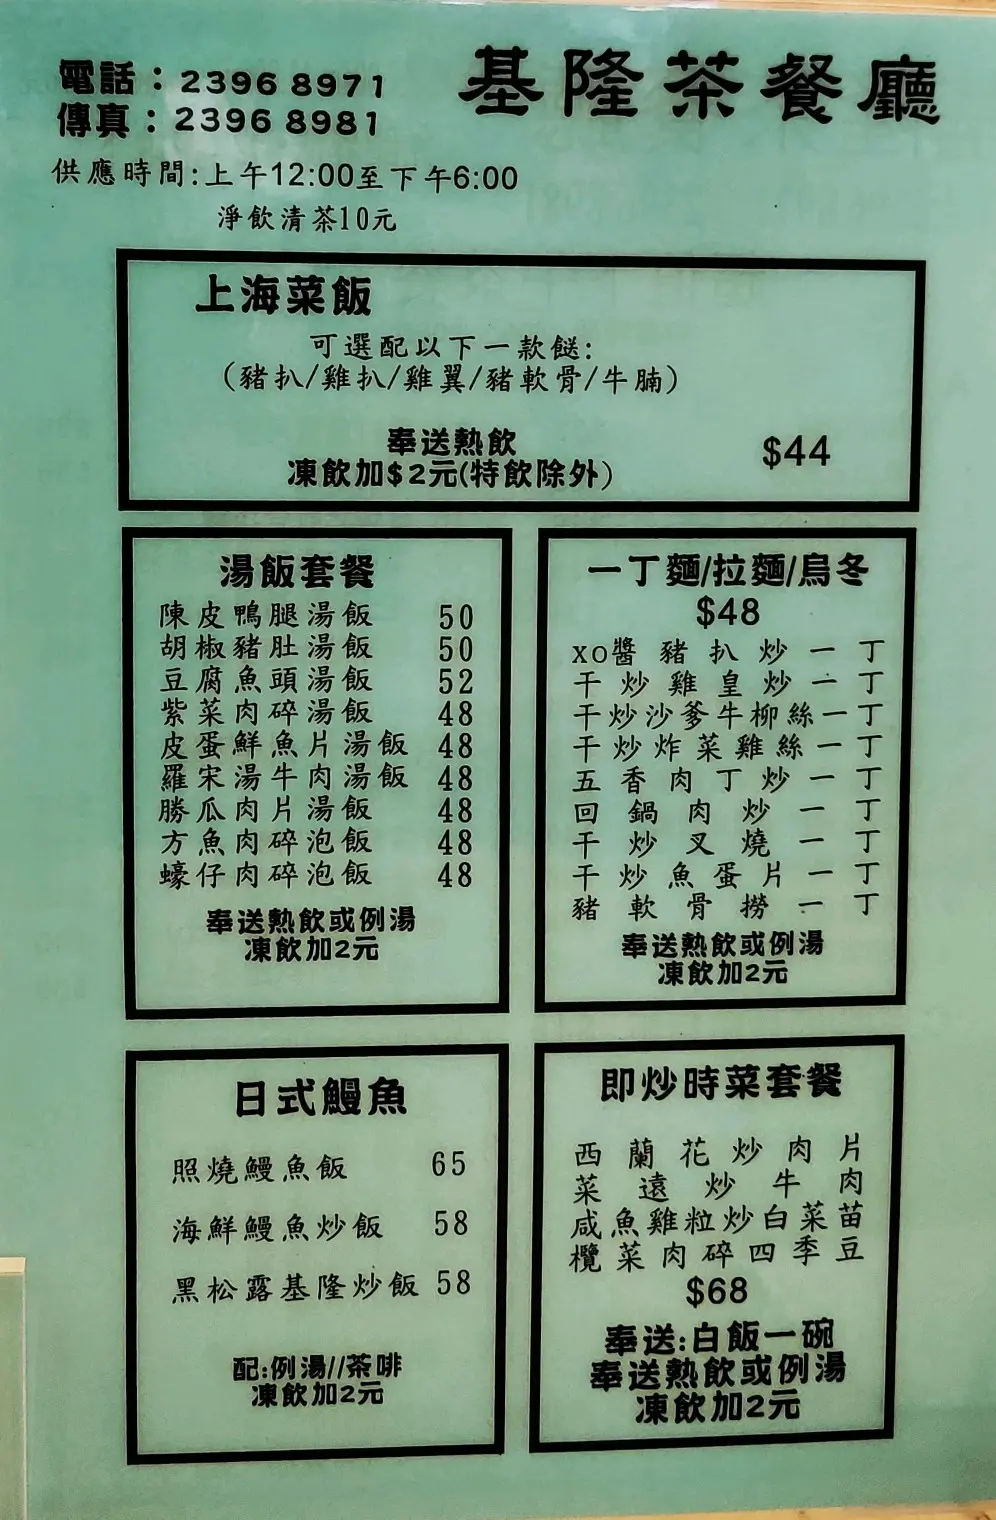 基隆茶餐廳
電話：2396 8971
傳真：2396 8981
供應時間:上午12:00至下午6:00
淨飲清茶10元
上海菜飯
可選配以下一款餸:
(豬扒/雞扒/雞翼/豬軟骨/牛腩)
奉送熱飲
凍飲加$2元(特飲除外)
$44
湯飯套餐
陳皮鴨腿湯飯 50
胡椒豬肚湯飯 50
豆腐魚頭湯飯 52
紫菜肉碎湯飯 48
皮蛋鮮魚片湯飯 48
羅宋湯牛肉湯飯 48
勝瓜肉片湯飯 48
方魚肉碎泡飯 48
蠔仔肉碎泡飯 48
奉送熱飲或例湯
凍飲加2元
一丁麵/拉麵/烏冬
$48
XO醬豬扒炒一丁
干炒雞皇炒一丁
干炒沙爹牛柳絲一丁
干炒炸菜雞絲一丁
五香肉丁炒一丁
回鍋肉炒一丁
干炒叉燒一丁
干炒魚蛋片一丁
豬軟骨撈一丁
奉送熱飲或例湯
凍飲加2元
日式鰻魚
照燒鰻魚飯 65
海鮮鰻魚炒飯 58
黑松露基隆炒飯 58
配:例湯//茶啡
凍飲加2元
即炒時菜套餐
西蘭花炒肉片
菜遠炒牛肉
咸魚雞粒炒白菜苗
欖菜肉碎四季豆
$68
奉送:白飯一碗
奉送熱飲或例湯
凍飲加2元